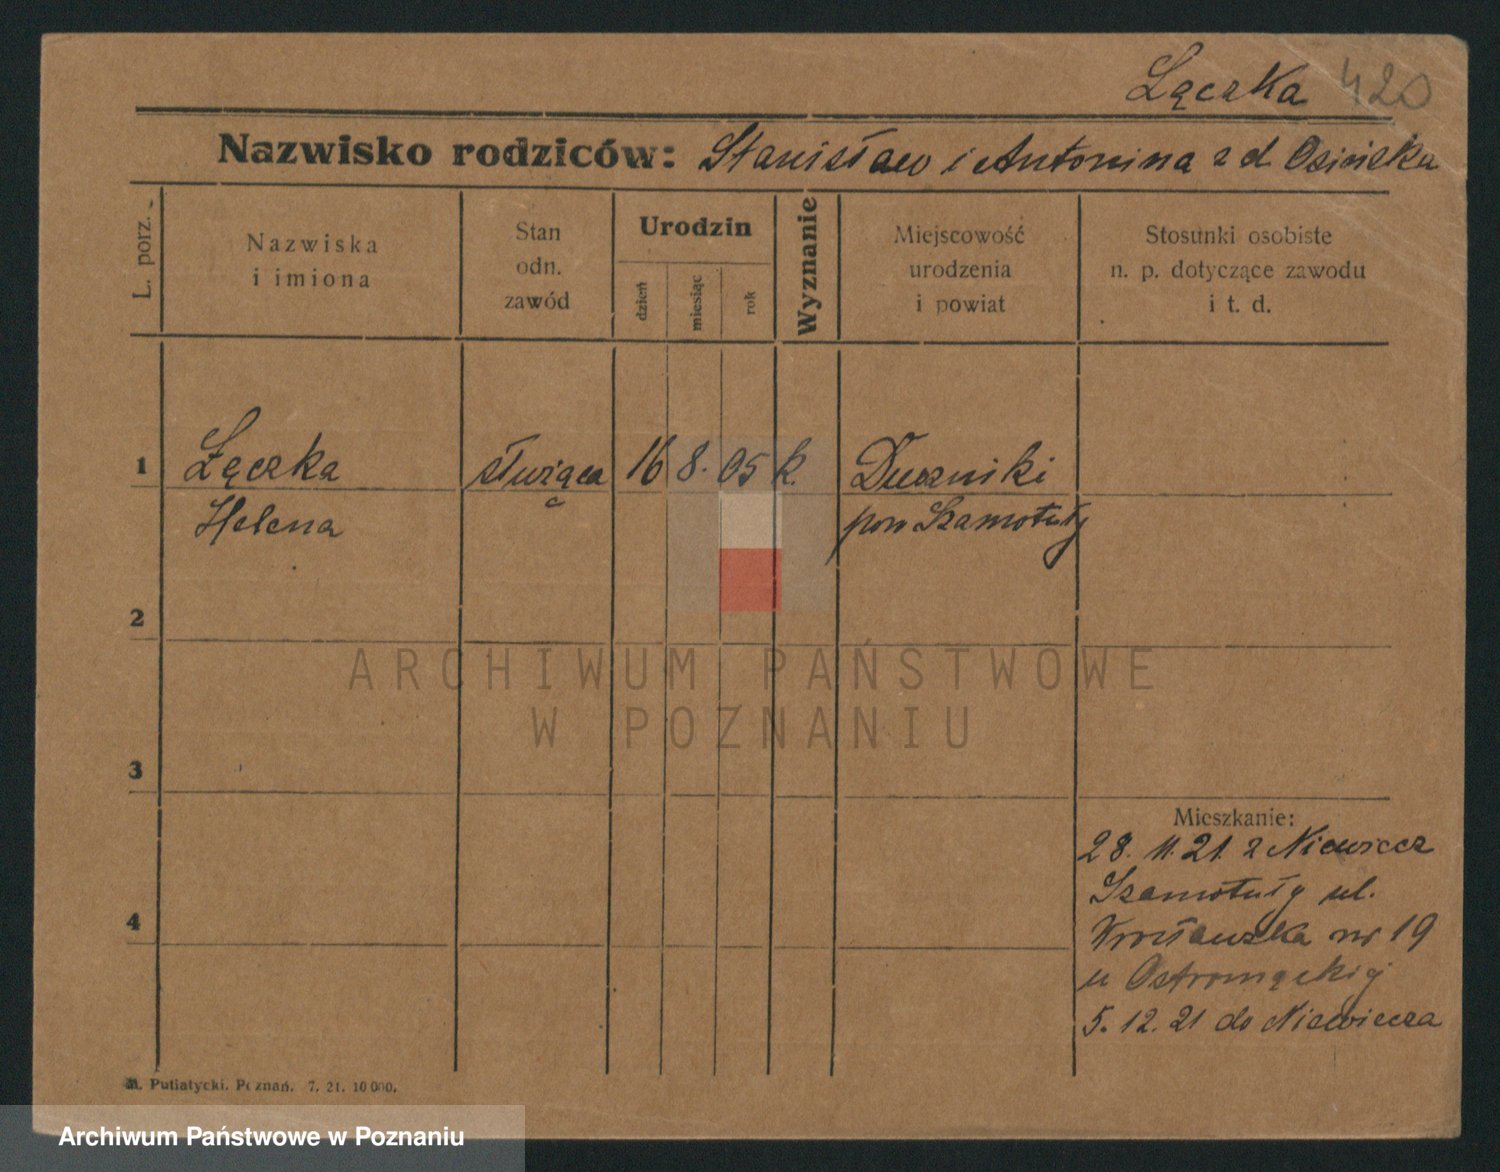 Łączka 420
Nazwisko rodziców: Stanisław i Antonina z d Osińska
L. porz.
Nazwiska
i imiona
Stan
odn.
zawód
Urodzin
dzień
miesiąc
rok
Wyznanie
Miejscowość
urodzenia
i powiat
Stosunki osobiste
n. p. dotyczące zawodu
i t. d.
1 Łączka służąca 16 8. 05 k. Duszniki
Helena pow Szamotuły
2
ARCHIWUM PAŃSTWOWE
W POZNANIU
3
Mieszkanie:
28. 11. 21. z Niewierz
Szamotuły ul.
4
Wrocławska nr 19
u
5. 12. 21 do Niewierza
M. Putiatycki. Poznań. 7. 21. 10 000.
Archiwum Państwowe w Poznaniu